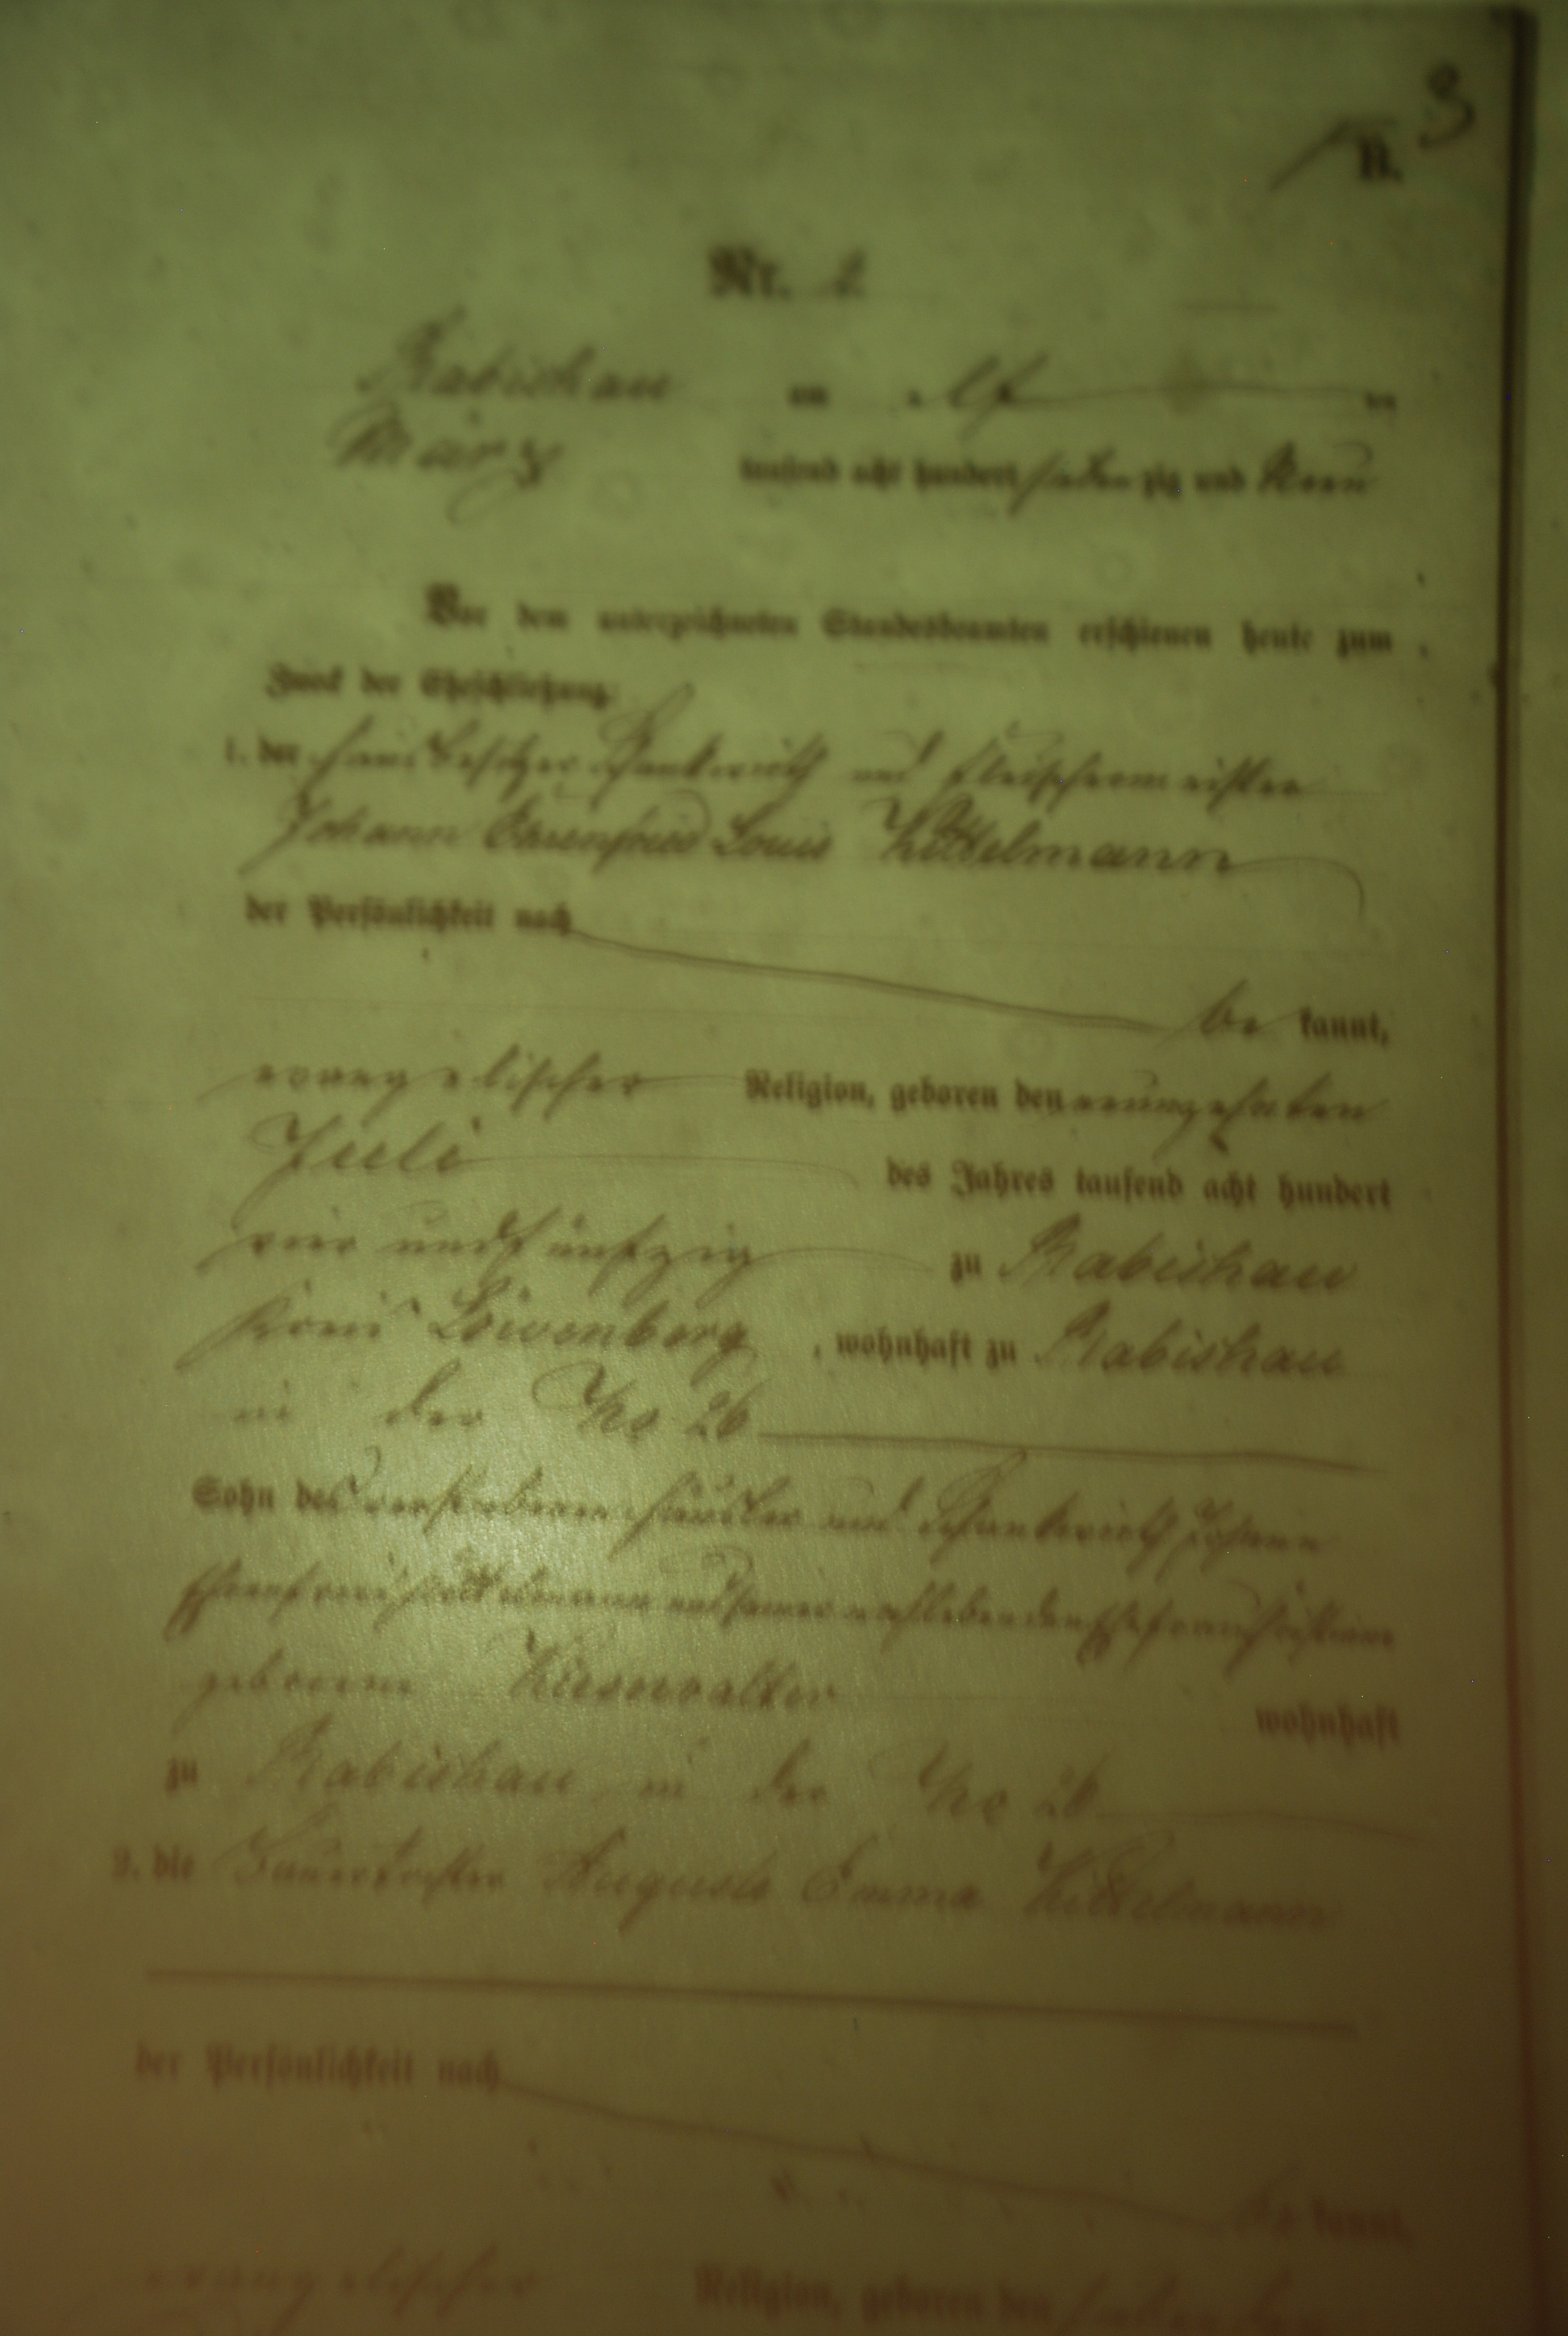 B. 3
Nr. 2
Rabishau am elf ten
März tausend acht hundert sieben zig und neun
Vor dem unterzeichneten Standesbeamten erschienen heute zum
Zweck der Eheschließung:
1. der Hausbesitzer, Schankwirth und Fleischermeister
Johann Ehrenfried Louis Kittelmann
der Persönlichkeit nach
be kannt,
evangelischer Religion, geboren den
Juli des Jahres tausend acht hundert
vier und fünfzig zu Rabishau
Kreis Löwenberg, wohnhaft zu Rabishau
in der No 26
Sohn des verstorbenen Häusler und Schankwirth Johann
Ehrenfried Kittelmann und seiner nachlebenden Ehefrau
geborene Kieswalter wohnhaft
zu Rabishau in der No 26
2. die Auguste Emma Kittelmann
der Persönlichkeit nach
be kannt,
evangelischer Religion, geboren den